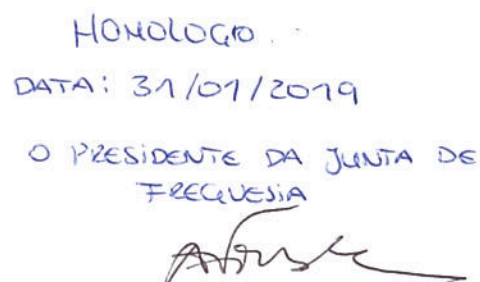 HOMOLOGO.
DATA: 31/01/2019
O PRESIDENTE DA JUNTA DE
FREGUESIA